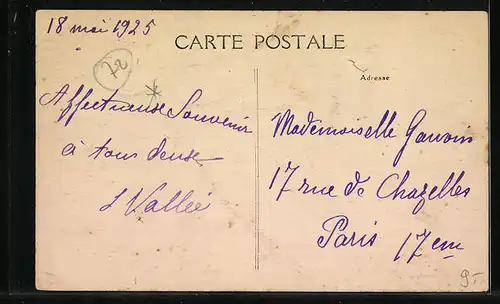 18 mai 1925
CARTE POSTALE
72
Adresse
Affectueuse Souvenir
à tous deuse
L Vallée
Mademoiselle Gauvin
17 rue de Chazelles
Paris 17em
9.-